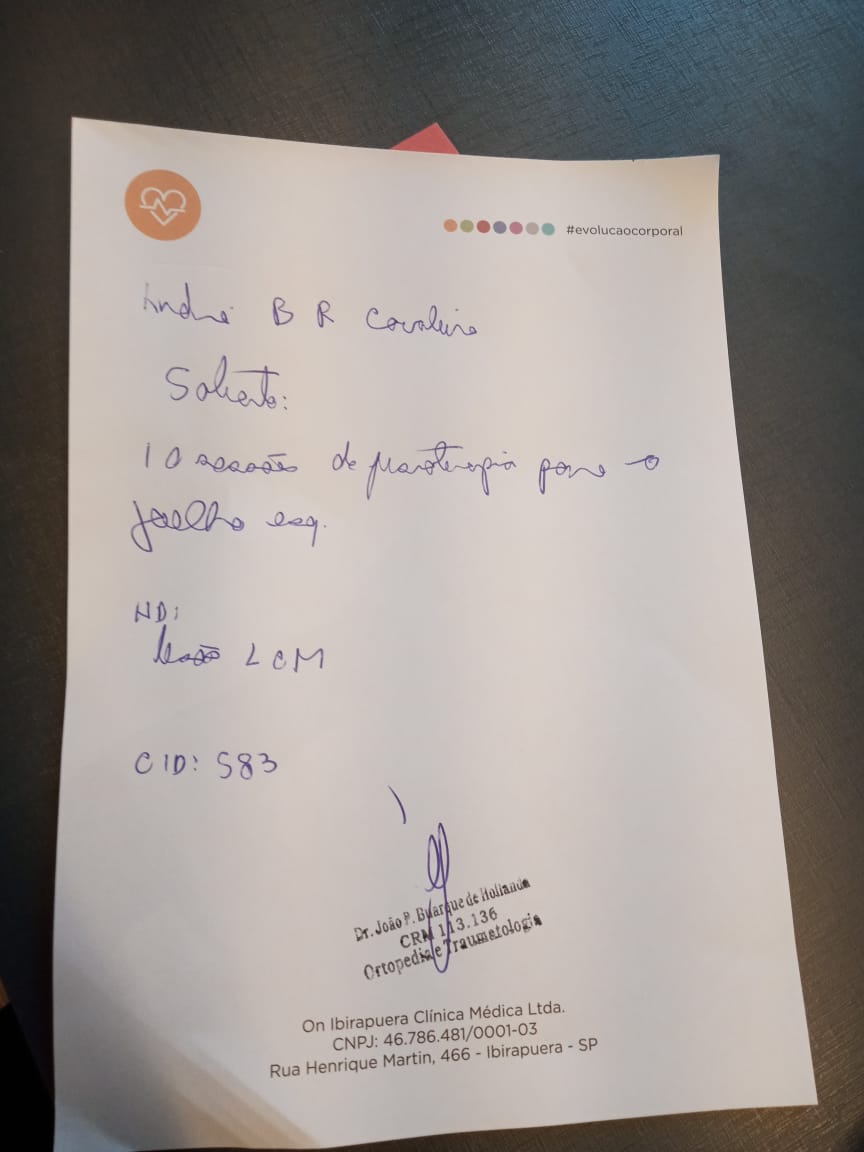 #evolucaocorporal
André B R Cavaleiro
Solicito:
10 sessões de fisioterapia para o
joelho esq.
HD:
lesão LCM
CID: S83
Dr. João P. Buarque de Hollanda
CRM 113.136
Ortopedia e Traumatologia
On Ibirapuera Clínica Médica Ltda.
CNPJ: 46.786.481/0001-03
Rua Henrique Martin, 466 - Ibirapuera - SP